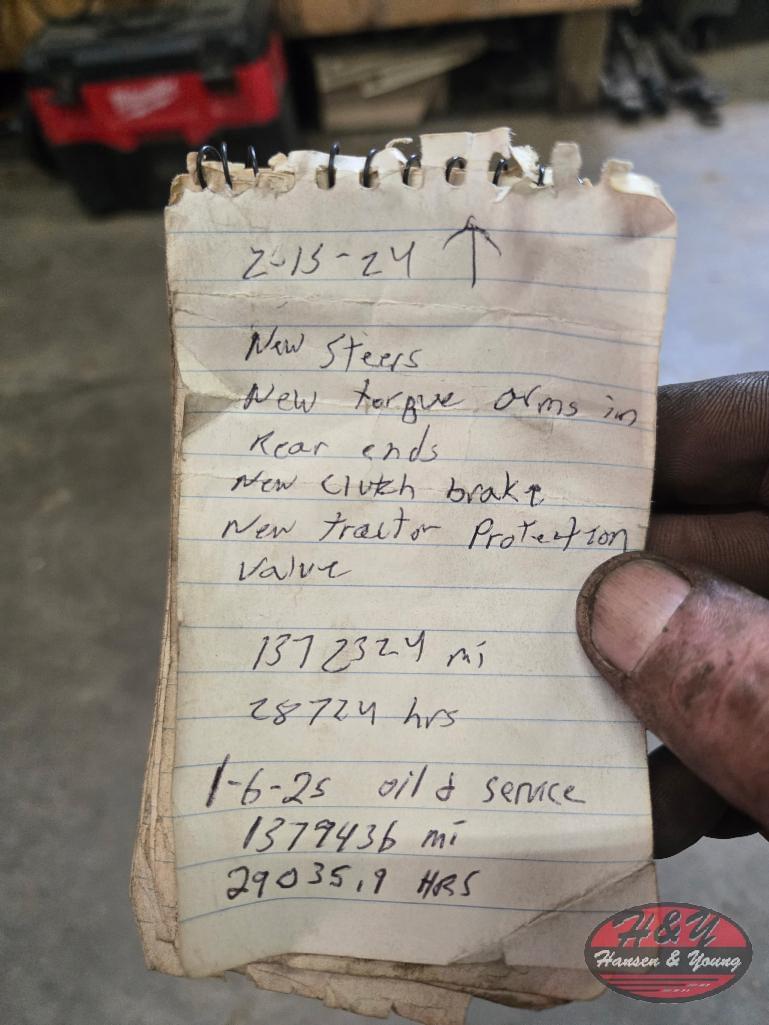 Milwaukee
2-13-24
New Steers
New torque arms in
Rear ends
New clutch brake
New tractor Protection
valve
1372324 mi
28724 hrs
1-6-25 oil & service
1379436 mi
29035.9 HRS
H&Y
Hansen & Young